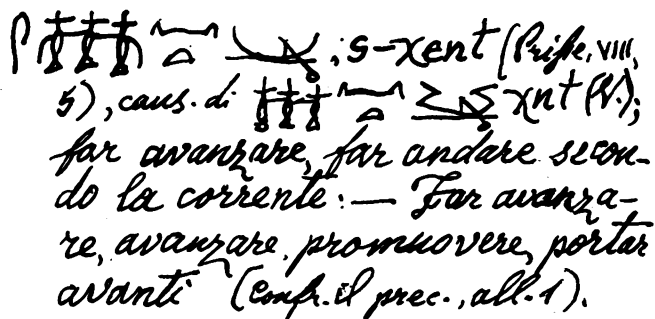 𓋴𓏃𓈖𓏏 ; s-χent (Prisse, VIII,
5), caus. di 𓏃𓈖𓏏 χnt (V.);
far avanzare, far andare secon-
do la corrente: — Far avanza-
re, avanzare, promuovere, portar
avanti (Confr. il prec., all. 1).